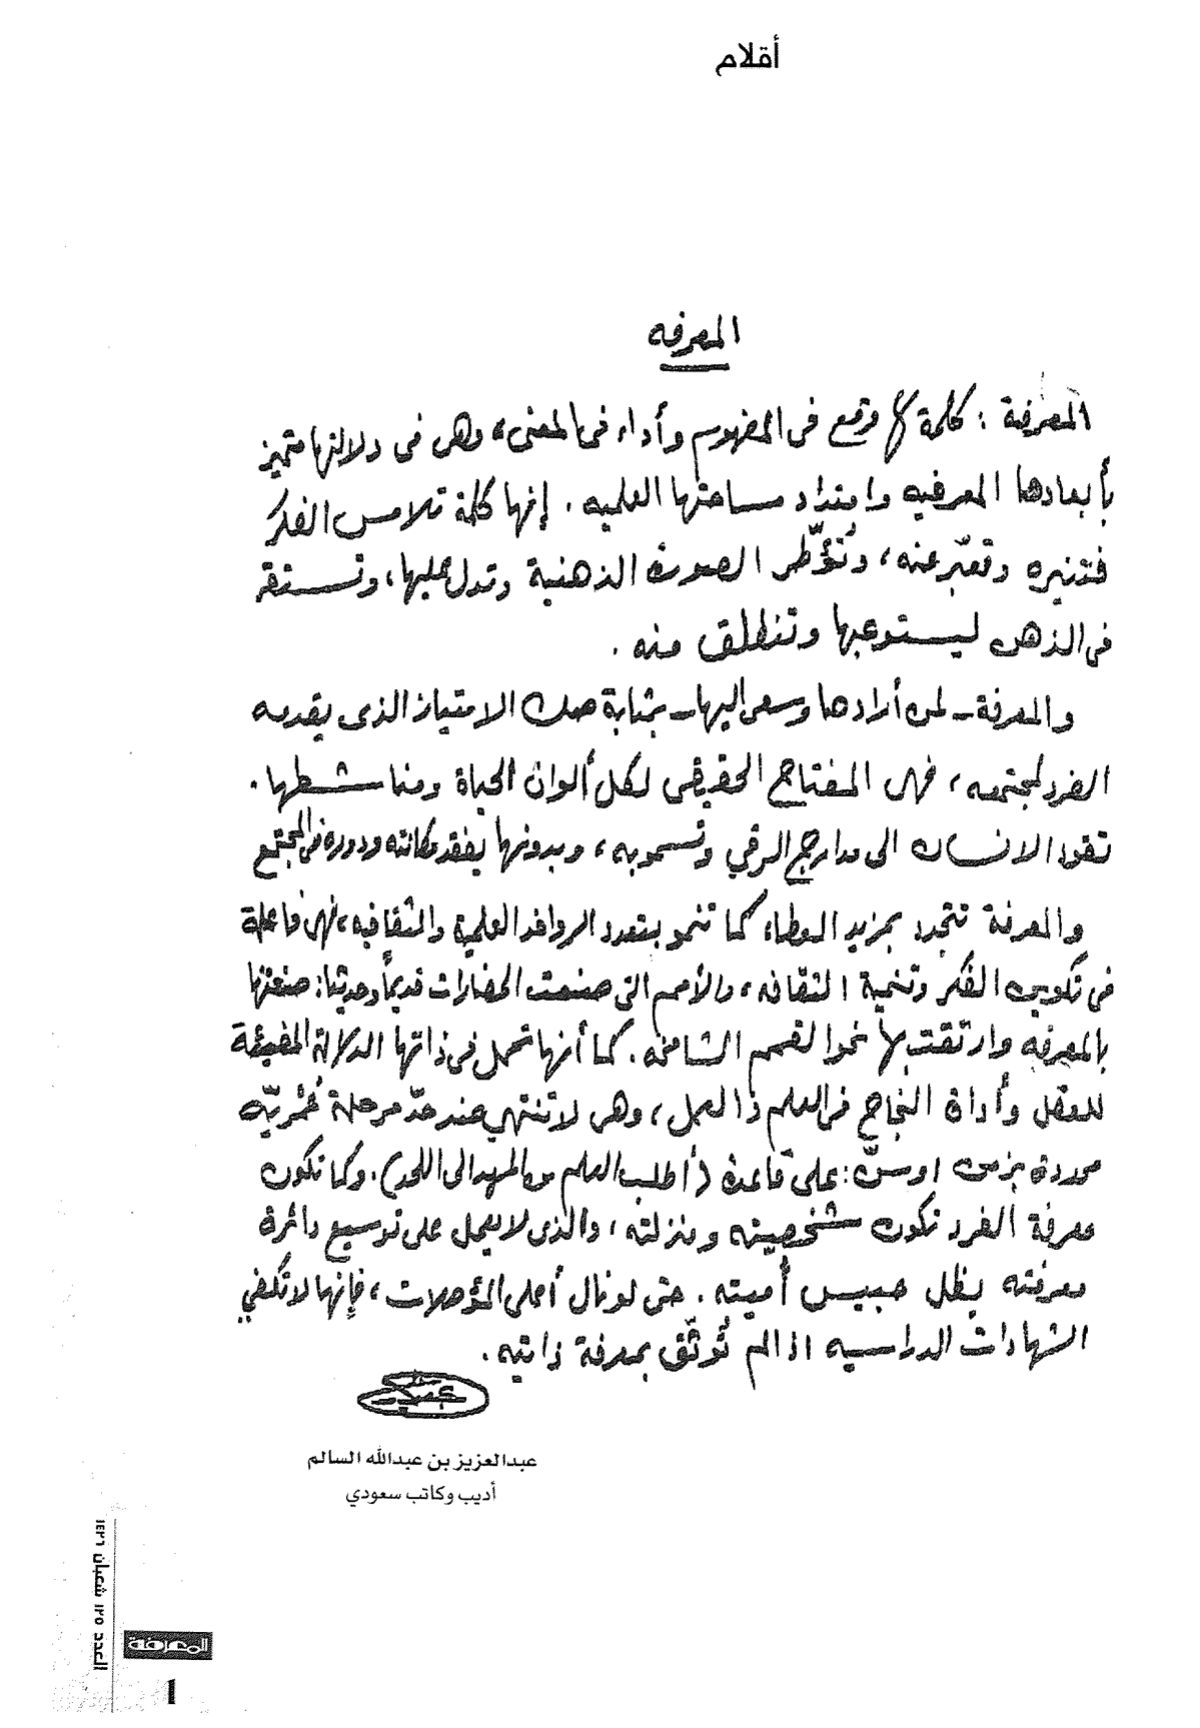 أقلام
المعرفه
المعرفة : كلمة لها وقع في المفهوم وأداء في المعنى، وهي في دلالتها تتميز
بأبعادها المعرفيه وامتداد مساحتها العلميه . إنها كلمة تلامس الفكر
فتنيره وتعبّر عنه، وتُؤطّر الصورة الذهنية وتدل عليها، وتستقر
في الذهن ليستوعبها وتنطلق منه .
والمعرفة - لمن أرادها وسعى إليها - بمثابة صك الامتياز الذي يقدمه
الفرد لمجتمعه، فهي المفتاح الحقيقي لكل ألوان الحياة ومناشطها .
تقود الانسان الى مدارج الرقي وتسمو به، وبدونها يفقد مكانته ودوره في المجتمع
والمعرفة تتجدد بمزيد العطاء كما تنمو بتعدد الروافد العلمية والثقافيه، فهي فاعلة
في تكوين الفكر وتنمية الثقافه، والأمم التي صنعت الحضارات قديماً وحديثا: صنعتها
بالمعرفه وارتقت بها نحو القمم الشامخه . كما أنها تحمل في ذاتها الدلالة المضيئة
للعقل وأداة النجاح في العلم والعمل، وهي لا تنتهي عند حدّ مرحلة عُمْريّه
محددة بزمن او سنّ: على قاعدة (أطلب العلم من المهد الى اللحد). وكما تكون
معرفة الفرد تكون شخصيته ومنزلته، والذي لا يعمل على توسيع دائرة
معرفته يظل حبيس أُميته . حتى لو نال أعلى المؤهلات، فإنها لا تكفي
الشهادات الدراسيه اذا لم تُوثّق بمعرفة ذاتيه .
عبدالعزيز بن عبدالله السالم
أديب وكاتب سعودي
العدد ١٢٥ شعبان ١٤٢٦
المعرفة
1